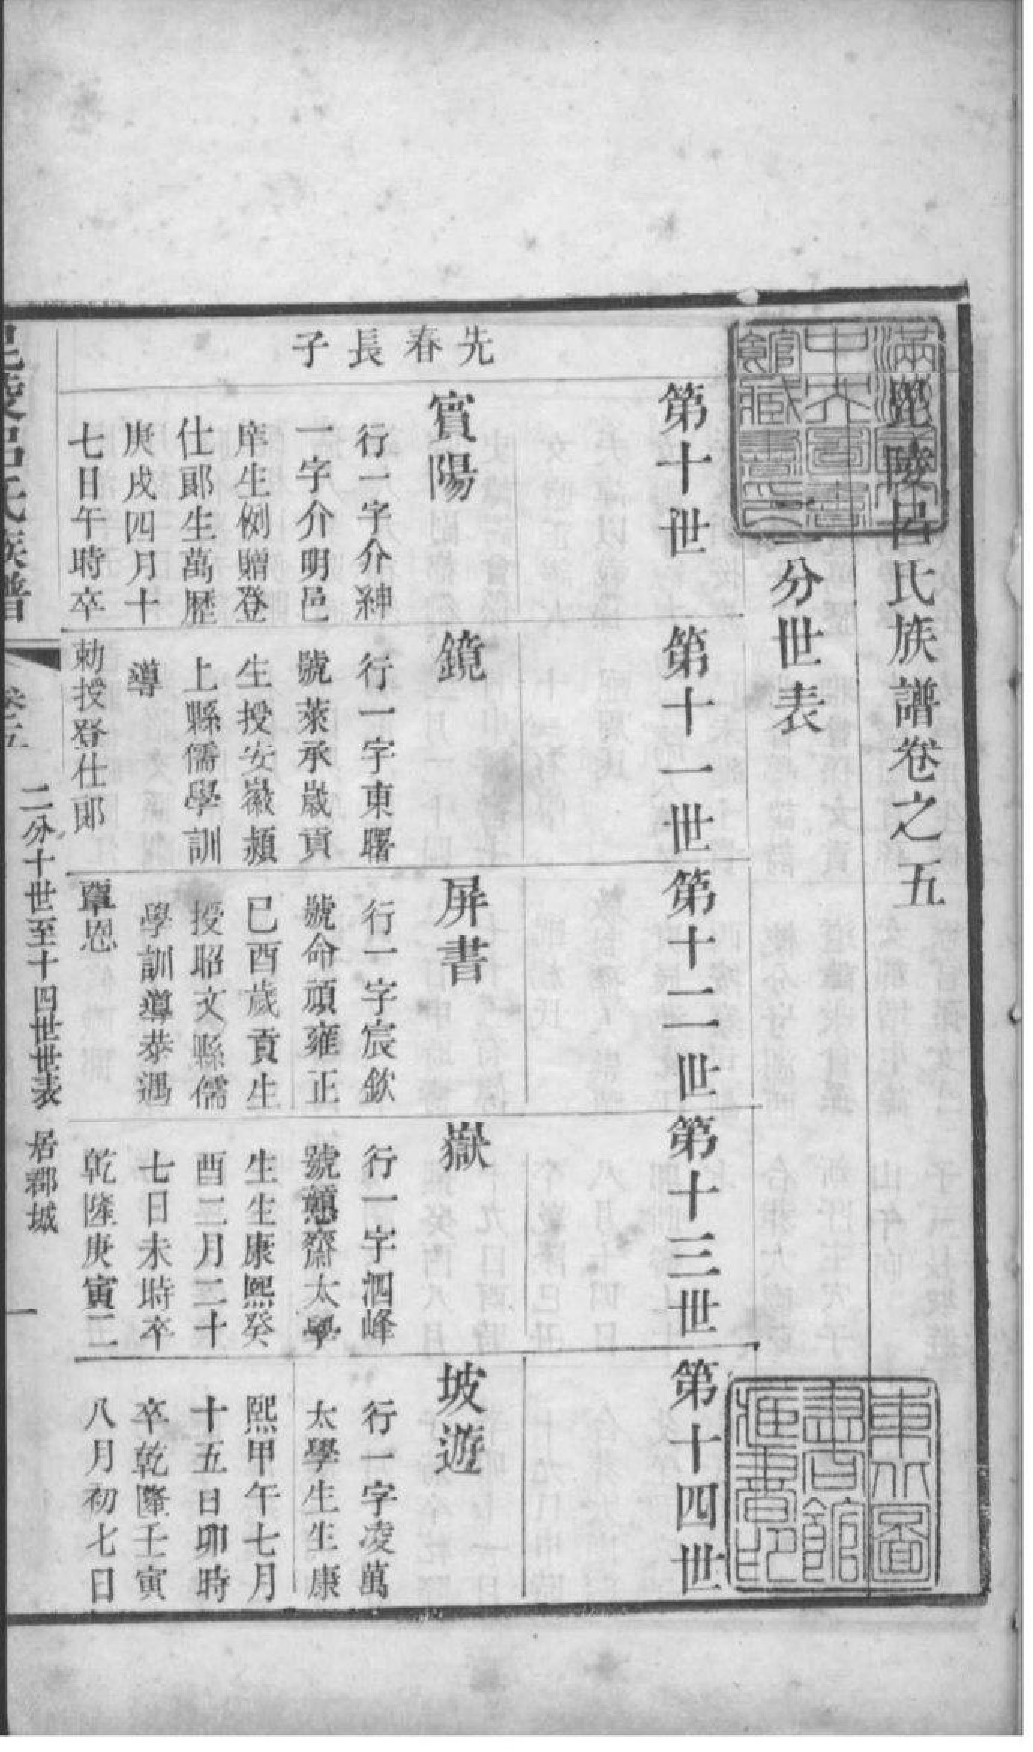 毘陵呂氏族譜卷之五
二分世表
第十世
第十一世
第十二世
第十三世
第十四世
先春長子
賓陽
行一字介紳
一字介明邑
庠生例贈登
仕郎生萬歷
庚戌四月十
七日午時卒
鏡
行一字東曙
號萊承歲貢
生授安徽潁
上縣儒學訓
導
勅授登仕郎
屏書
行一字宸欽
號命頑雍正
己酉歲貢生
授昭文縣儒
學訓導恭遇
覃恩
嶽
行一字泗峰
號戇齋太學
生生康熙癸
酉三月二十
七日未時卒
乾隆庚寅二
坡遊
行一字凌萬
太學生生康
熙甲午七月
十五日卯時
卒乾隆壬寅
八月初七日
毘陵呂氏族譜
卷五
二分十世至十四世世表 居郡城
一
滿洲
中央圖書
館藏書印
東北圖
書館
藏書印